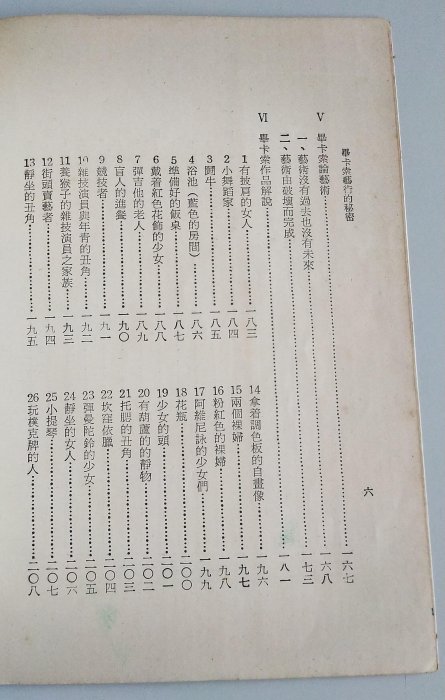 六
畢卡索藝術的秘密……一六七
V 畢卡索論藝術……一六八
一、藝術沒有過去也沒有未來……一七三
二、藝術由破壞而完成……一八一
VI 畢卡索作品解說……
1 有披肩的女人……一八三
2 小舞蹈家……一八四
3 鬪牛……一八五
4 浴池（藍色的房間）……一八六
5 準備好的飯桌……一八七
6 戴着紅色花飾的少女……一八八
7 彈吉他的老人……一八九
8 盲人的進餐……一九〇
9 競技者……一九一
10 雜技演員與年青的丑角……一九二
11 養猴子的雜技演員之家族……一九三
12 街頭賣藝者……一九四
13 靜坐的丑角……一九五
14 拿着調色板的自畫像……一九六
15 兩個裸婦……一九七
16 粉紅色的裸婦……一九八
17 阿維尼詠的少女們……一九九
18 花瓶……二〇〇
19 少女的頭……二〇一
20 有葫蘆的的靜物……二〇二
21 托腮的丑角……二〇三
22 坎窪依臘……二〇四
23 彈曼陀鈴的少女……二〇五
24 靜坐的女人……二〇六
25 小提琴……二〇七
26 玩樸克牌的人……二〇八